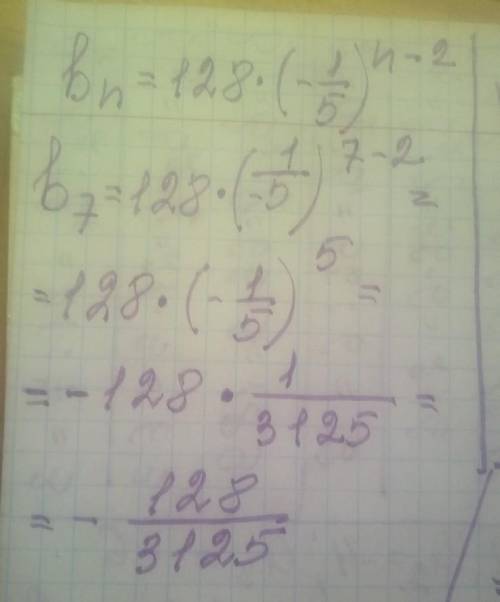 bₙ = 128 · (-1/5)ⁿ⁻²
b₇ = 128 · (1/-5)⁷⁻² =
= 128 · (-1/5)⁵ =
= - 128 · 1/3125 =
= - 128/3125